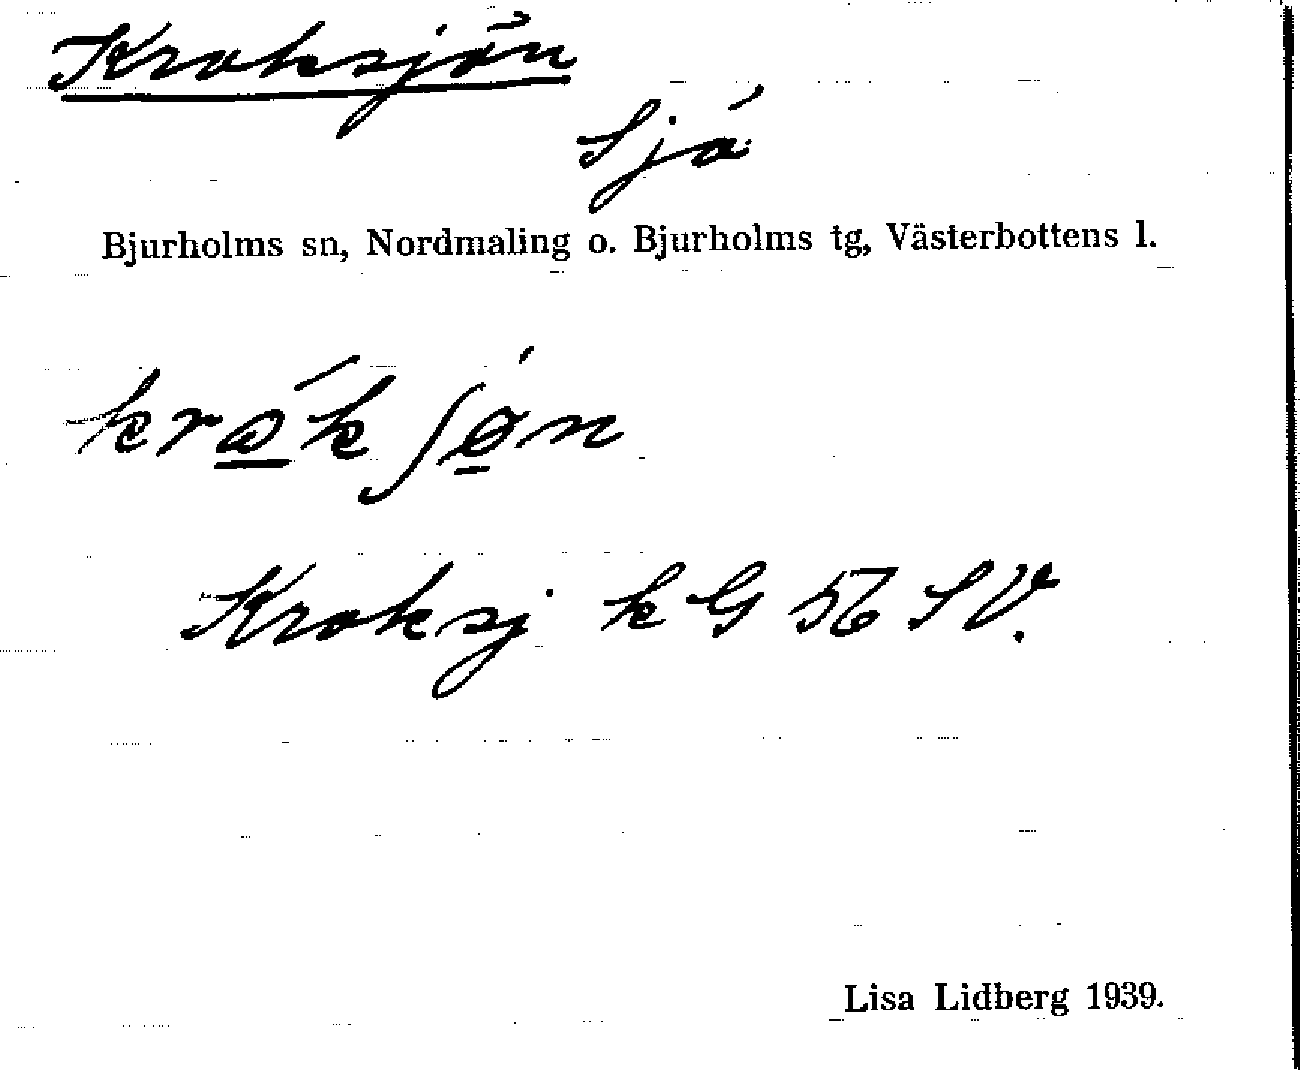 Kroksjön
Sjö
Bjurholms sn, Nordmaling o. Bjurholms tg, Västerbottens l.
krώ̲k ʃǿ̲n
Kroksj k G 56 SV.
Lisa Lidberg 1939.